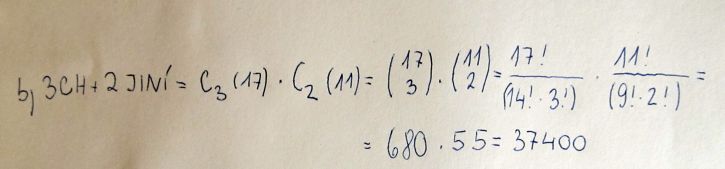 b, 3CH + 2 JINÍ = C₃ (17) · C₂ (11) = (17 3) · (11 2) = 17! / (14! · 3!) · 11! / (9! · 2!) =
= 680 · 55 = 37400